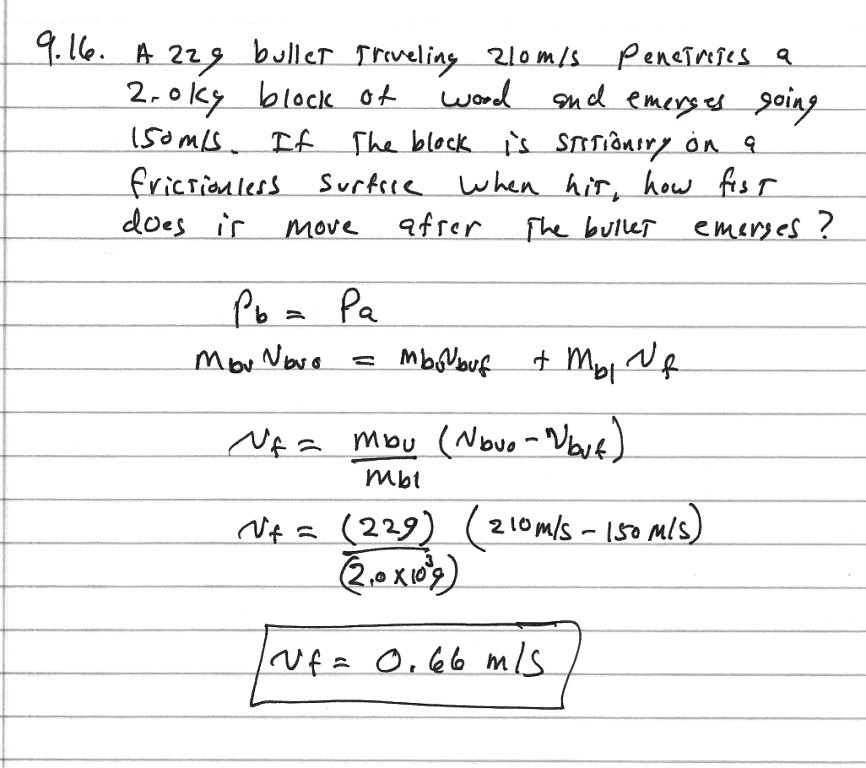 9.16. A 22g bullet traveling 210m/s penetrates a
2.0kg block of wood and emerges going
150m/s. If the block is stationary on a
frictionless surface when hit, how fast
does it move after the bullet emerges?
Pb = Pa
mbu vbuo = mbuvbuf + mbl vf
vf = mbu/mbl (vbuo - vbuf)
vf = (22g)/(2.0 x 10³g) (210m/s - 150 m/s)
vf = 0.66 m/s